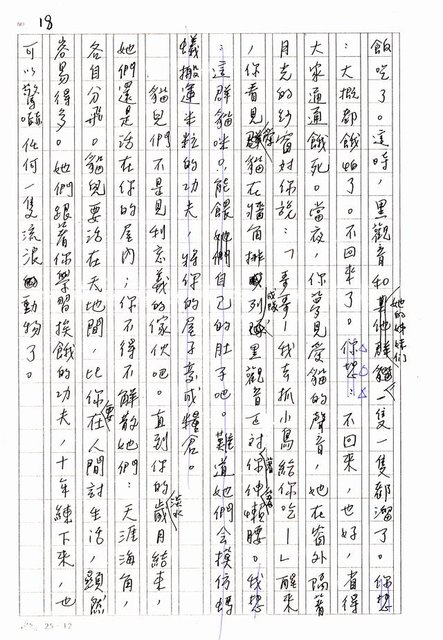 18
飯吃了。這時，黑觀音和她的姊妹們一隻一隻都溜了。你想
：大概都餓怕了。不回來了。你想：不回來，也好，省得
大家通通餓死。當夜，你夢見愛貓的聲音，她在窗外隔著
月亮的紗窗對你說：「哥哥！我去抓小鳥給你吃！」醒來
，你看見群貓在牆角排成隊，黑觀音正對著你伸懶腰。我想
：這群貓咪。能餵她們自己的肚子吧。難道她們會模仿螞
蟻搬運米粒的功夫，將你的屋子變成糧倉。
貓兒們不是見利忘義的傢伙吧。直到你的流水歲月結束，
她們還是活在你的屋內；你不得不解散她們：天涯海角，
各自分飛。貓兒要活在天地間，比你要在人間討生活，顯然
容易得多。她們跟著你學習挨餓的功夫，十年練下來，也
可以驚嚇任何一隻流浪動物了。
25×12